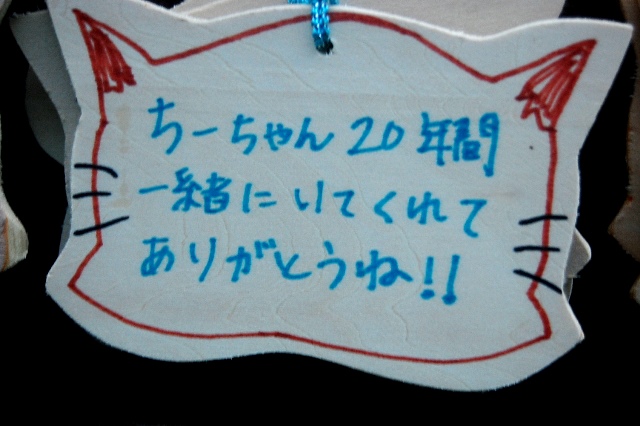 ちーちゃん20年間
一緒にいてくれて
ありがとうね!!